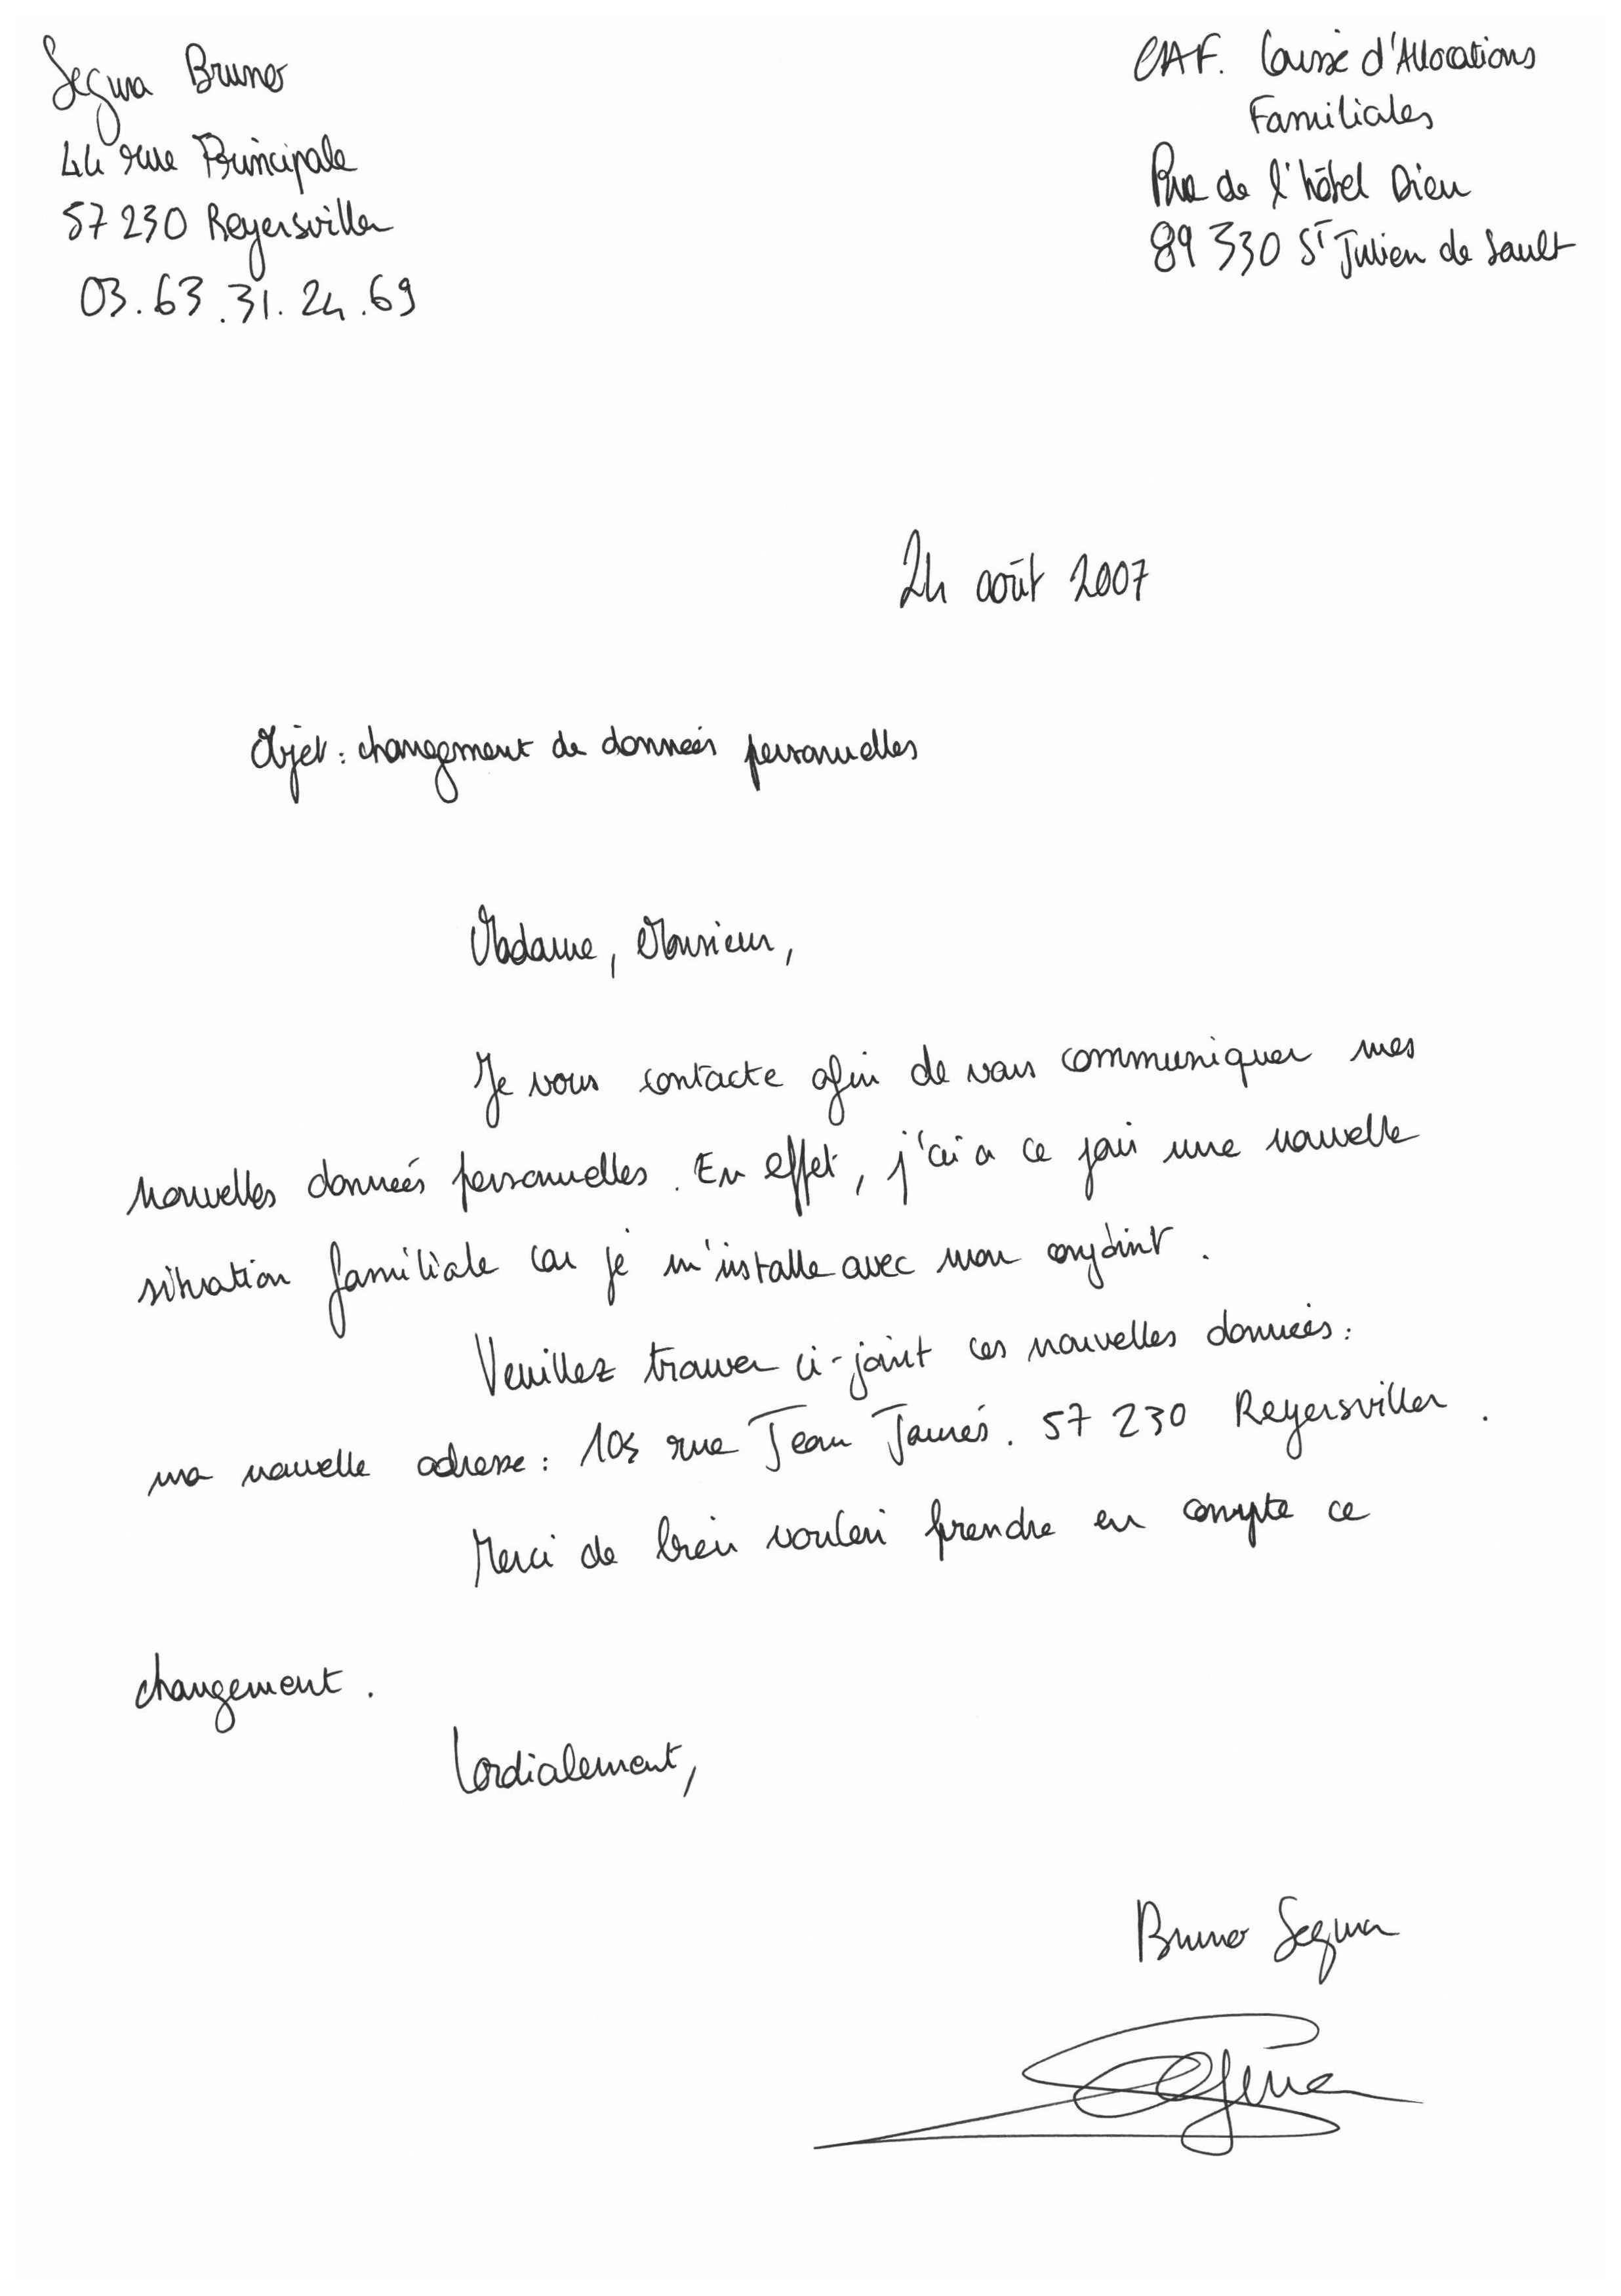 Segura Bruno
44 rue Principale
57230 Reyersviller
03.63.31.24.69
CAF. Caisse d'Allocations
Familiales
Rue de l'hôtel Dieu
89 330 St Julien de Sault
24 août 2007
Objet : changement de données personnelles
Madame, Monsieur,
Je vous contacte afin de vous communiquer mes
nouvelles données personnelles. En effet, j'ai a ce jour une nouvelle
situation familiale car je m'installe avec mon conjoint.
Veuillez trouver ci-joint ces nouvelles données :
ma nouvelle adresse : 105 rue Jean Jaurés. 57 230 Reyersviller.
Merci de bien vouloir prendre en compte ce
changement.
Cordialement,
Bruno Segura
Segura